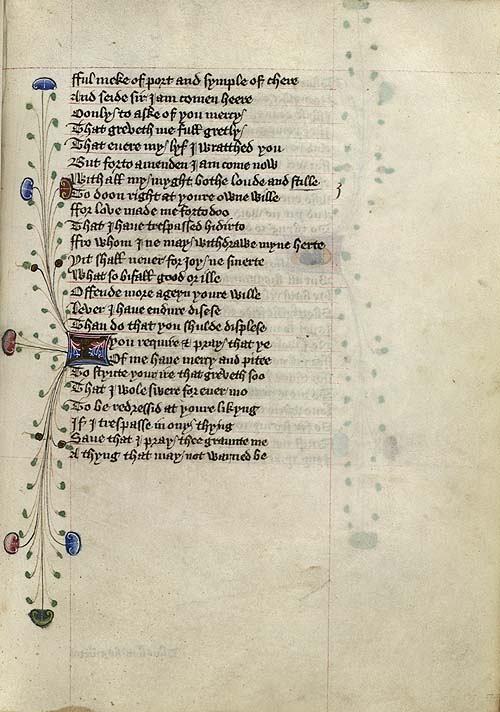 fful meke of port and symple of chere
And seide sir I am comen heere
Oonly to aske of you mercy
That greveth me full gretly
That euere my lyf I wratthed you
But forto amenden I am come now
With all my myght bothe loude and stille
To doon right at youre owne wille
ffor love made me forto doo
That I have trespassed hidirto
ffro whom I ne may withdrawe myne herte
Yit shall never for ioy ne smerte
What so bifall good or ille
Offende more ageyn youre wille
Lever I have endure disese
Than do that you shulde displese
I you require & pray that ye
Of me have mercy and pitee
To stynte your ire that greveth soo
That I wole swere for euer mo
To be redressid at youre likyng
If I trespasse in ony thyng
Save that I pray thee graunte me
A thyng that may not warned be